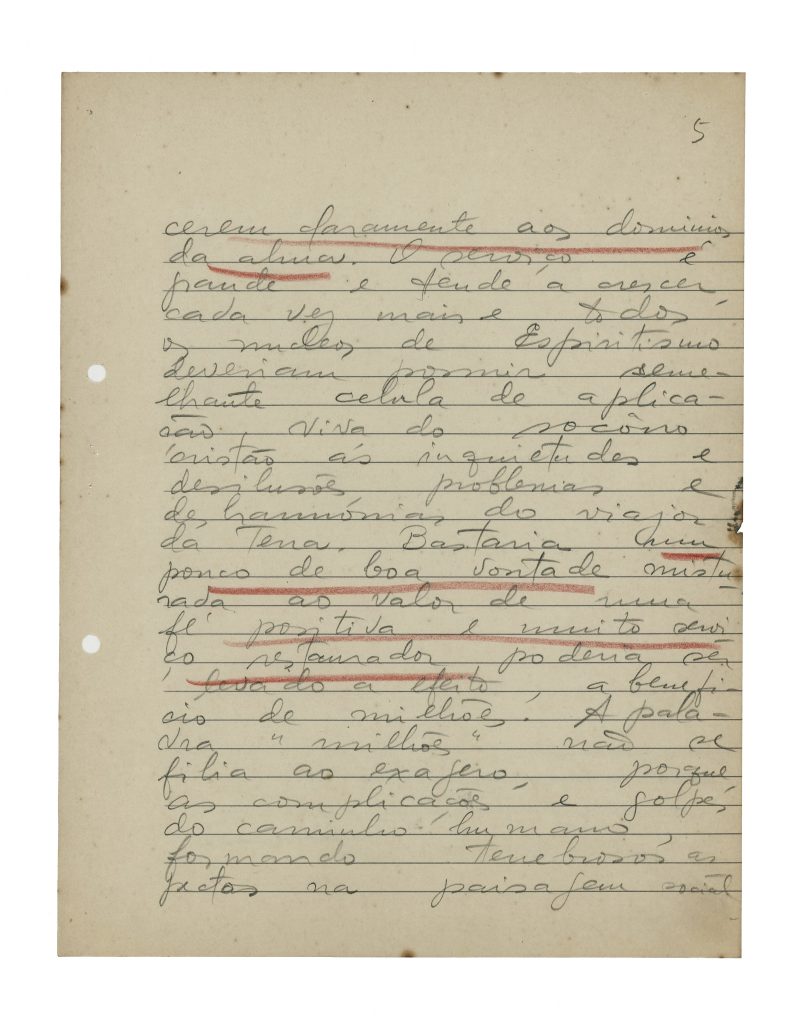 5
cerem claramente aos dominios
da alma. O serviço é
grande e tende a crescer
cada vez mais e todos
os nucleos de Espiritismo
deveriam possuir seme-
lhante celula de aplica-
ção viva do socôrro
cristão ás inquietudes e
desilusões problemas e
deharmónias do viajor
da Terra. Bastaria um
pouco de boa vontade mistu
rada ao valor de uma
fé positiva e muito servi
ço restaurador poderia ser
levado a efeito, a benefi-
cio de milhões. A pala-
vra "milhões" não se
filia ao exagero, porque
as complicações e golpes
do caminho humano,
formando tenebrosos as
pectos na paisagem social